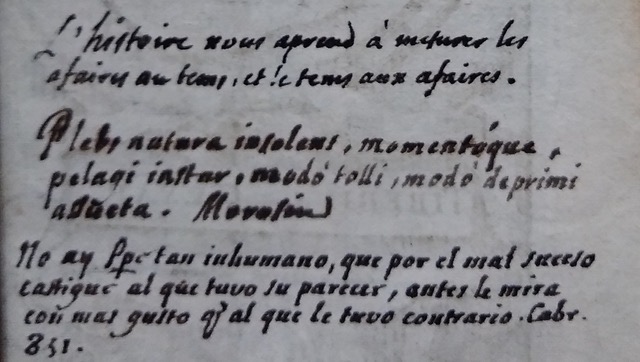 L'histoire nous aprend à mesurer les
afaires au tems, et le tems aux afaires.
Plebs natura insolens, momentóque,
pelagi instar, modò tolli, modò deprimi
assueta. Morosin
No ay Ppe tan inhumano, que por el mal suceso
castigue al que tuvo su parecer, antes le mira
con mas gusto q̃ al que le tuvo contrario. Cabr.
851.